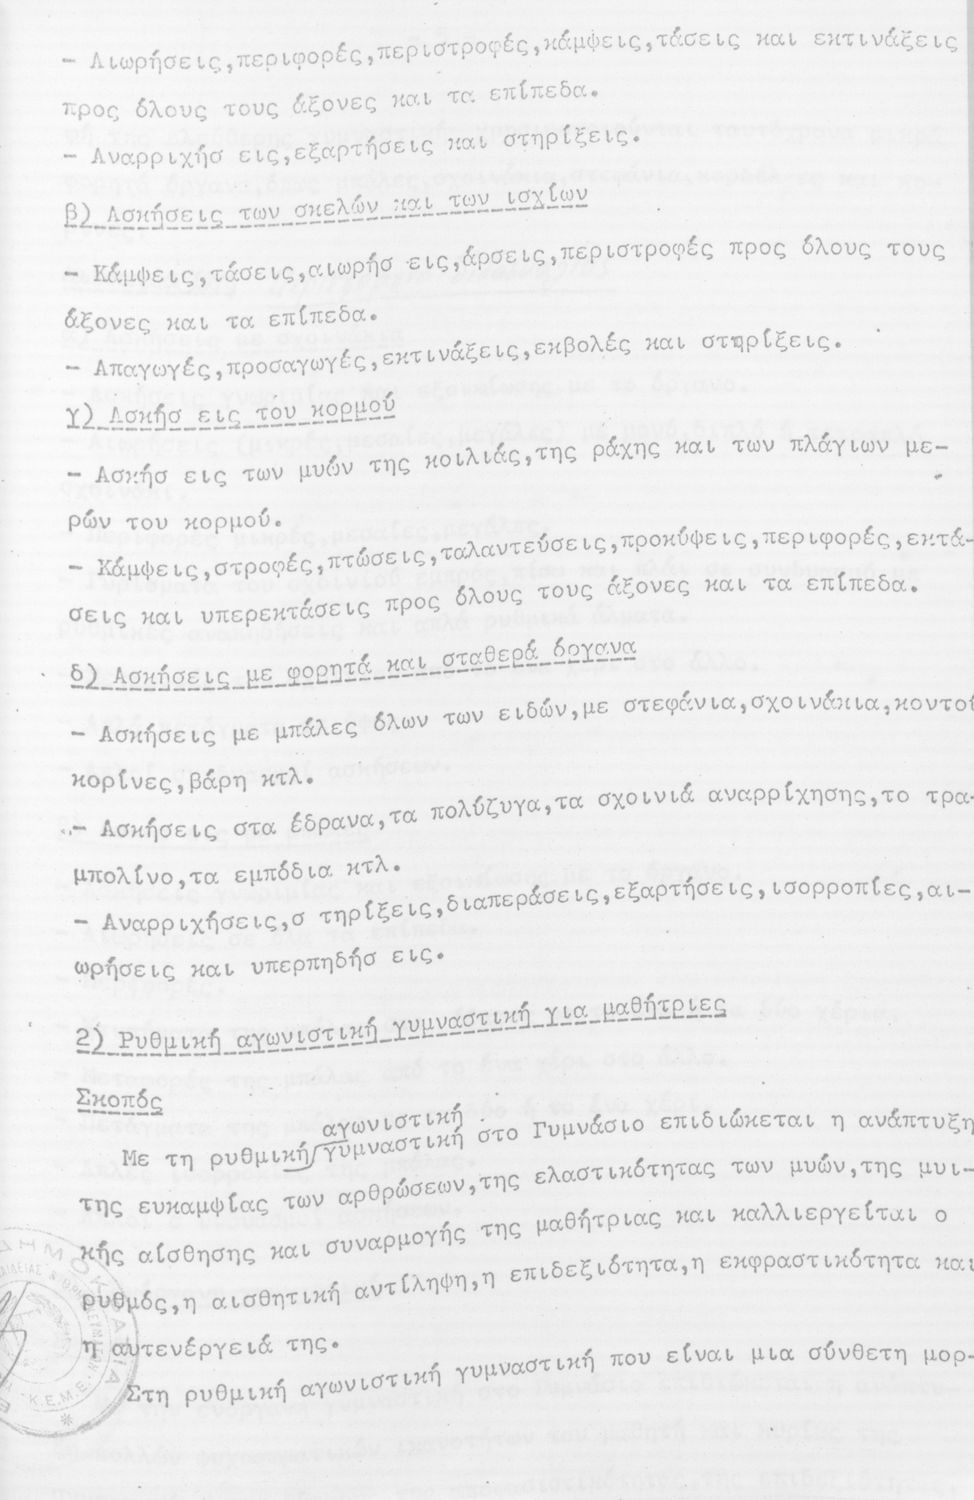 - Αιωρήσεις,περιφορές,περιστροφές,κάμψεις,τάσεις και εκτινάξεις
προς όλους τους άξονες και τα επίπεδα.
- Αναρριχήσ εις,εξαρτήσεις και στηρίξεις.
β) Ασκήσεις των σκελών και των ισχίων
- Κάμψεις,τάσεις,αιωρήσ εις,άρσεις,περιστροφές προς όλους τους
άξονες και τα επίπεδα.
- Απαγωγές,προσαγωγές,εκτινάξεις,εκβολές και στηρίξεις.
γ) Ασκήσ εις του κορμού
- Ασκήσ εις των μυών της κοιλιάς,της ράχης και των πλάγιων με-
ρών του κορμού.
- Κάμψεις,στροφές,πτώσεις,ταλαντεύσεις,προκύψεις,περιφορές,εκτά-
σεις και υπερεκτάσεις προς όλους τους άξονες και τα επίπεδα.
δ) Ασκήσεις με φορητά και σταθερά όργανα
- Ασκήσεις με μπάλες όλων των ειδών,με στεφάνια,σχοινάκια,κοντοί
κορίνες,βάρη κτλ.
- Ασκήσεις στα έδρανα,τα πολύζυγα,τα σχοινιά αναρρίχησης,το τρα-
μπολίνο,τα εμπόδια κτλ.
- Αναρριχήσεις,σ τηρίξεις,διαπεράσεις,εξαρτήσεις,ισορροπίες,αι-
ωρήσεις και υπερπηδήσ εις.
2) Ρυθμική αγωνιστική γυμναστική για μαθήτριες
Σκοπός
αγωνιστική
Με τη ρυθμική γυμναστική στο Γυμνάσιο επιδιώκεται η ανάπτυξη
της ευκαμψίας των αρθρώσεων,της ελαστικότητας των μυών,της μυι-
κής αίσθησης και συναρμογής της μαθήτριας και καλλιεργείται ο
ρυθμός,η αισθητική αντίληψη,η επιδεξιότητα,η εκφραστικότητα και
η αυτενέργειά της.
Στη ρυθμική αγωνιστική γυμναστική που είναι μια σύνθετη μορ-
Κ.Ε.Μ.Ε.